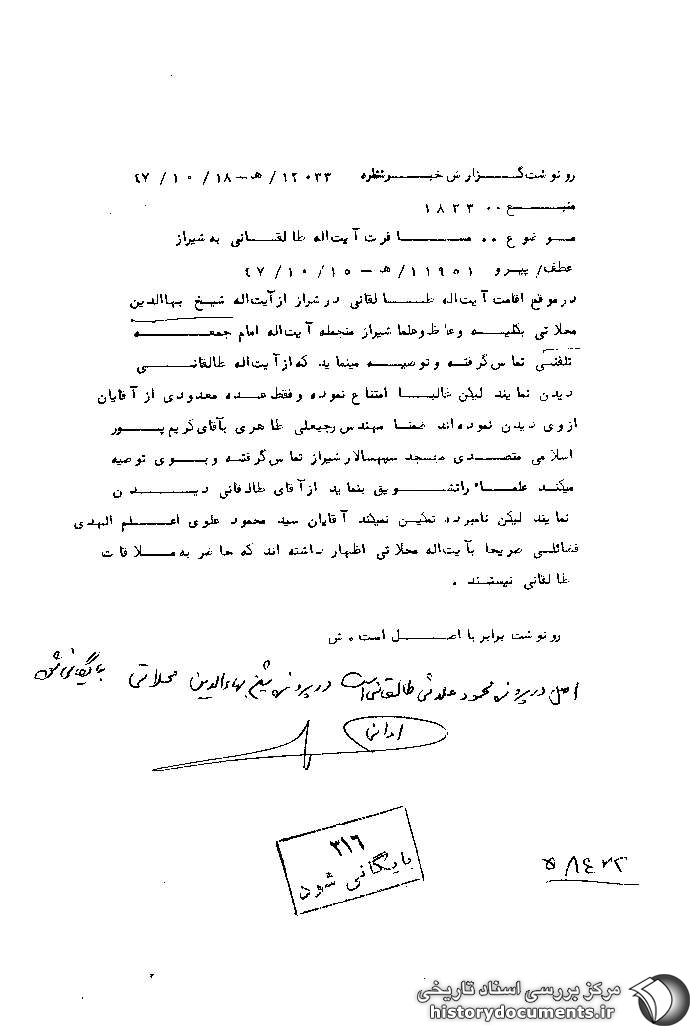 رونوشت گزارش خبر شماره ۱۲۰۳۳/هـ-۱۸/۱۰/۴۷
منبع ۰۰ ۱۸۲۳
موضوع ۰۰ مسافرت آیت‌اله طالقانی به شیراز
عطف/پیرو ۱۱۹۵۱/هـ-۱۵/۱۰/۴۷
در موقع اقامت آیت‌اله طالقانی در شراز از آیت‌اله شیخ بهاالدین
محلاتی بکلیه وعاظ و علما شیراز منجمله آیت‌اله امام جمعه
تلفنی تماس گرفته و توصیه مینماید که از آیت‌اله طالقانی
دیدن نمایند لیکن غالبا امتناع نموده و فقط عده معدودی از آقایان
از وی دیدن نموده‌اند ضمنا مهندس رجبعلی طاهری بآقای کریم پور
اسلامی متصدی مسجد سپهسالار شیراز تماس گرفته و بوی توصیه
میکند علماء را تشویق بنماید از آقای طالقانی دیدن
نمایند لیکن نامبرده تمکین نمیکند آقایان سید محمود علوی اعلم الهدی
فضائلی صریحا بآیت‌اله محلاتی اظهار داشته اند که حاضر به ملاقات
طالقانی نیستند .
رونوشت برابر با اصل است . ش
اصل در پرونده محمود علائی طالقانی است در پرونده شیخ بهاءالدین محلاتی بایگانی شود
۳۱۶
بایگانی شود
۵۸۴۲۲
مرکز بررسی اسناد تاریخی
historydocuments.ir